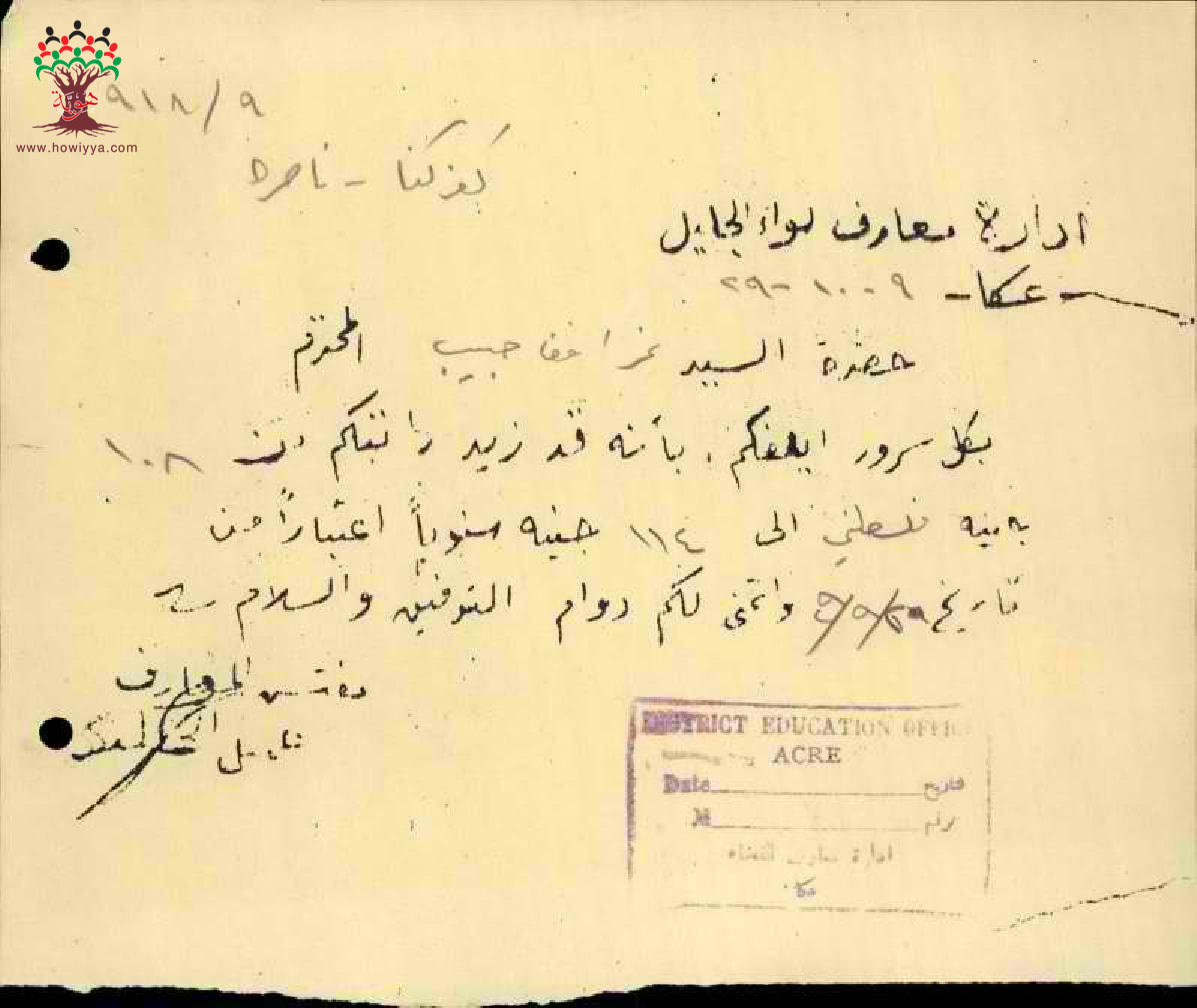 هوية
www.howiyya.com
٩١٨/٩
كفر كنا - ناصرة
ادارة معارف لواء الجليل
- عكا - ٩-١٠-٢٩
حضرة السيد حبيب المحترم
بكل سرور ابلغكم بأنه قد زيد راتبكم من ١٠٨
جنيه فلسطيني الى ١١٤ جنيه سنوياً اعتباراً من
تاريخ واتمنى لكم دوام التوفيق والسلام
مفتش المعارف
DISTRICT EDUCATION OFFIC
ACRE
Date تاريخ
№ رقم
ادارة معارف قضاء
عكا